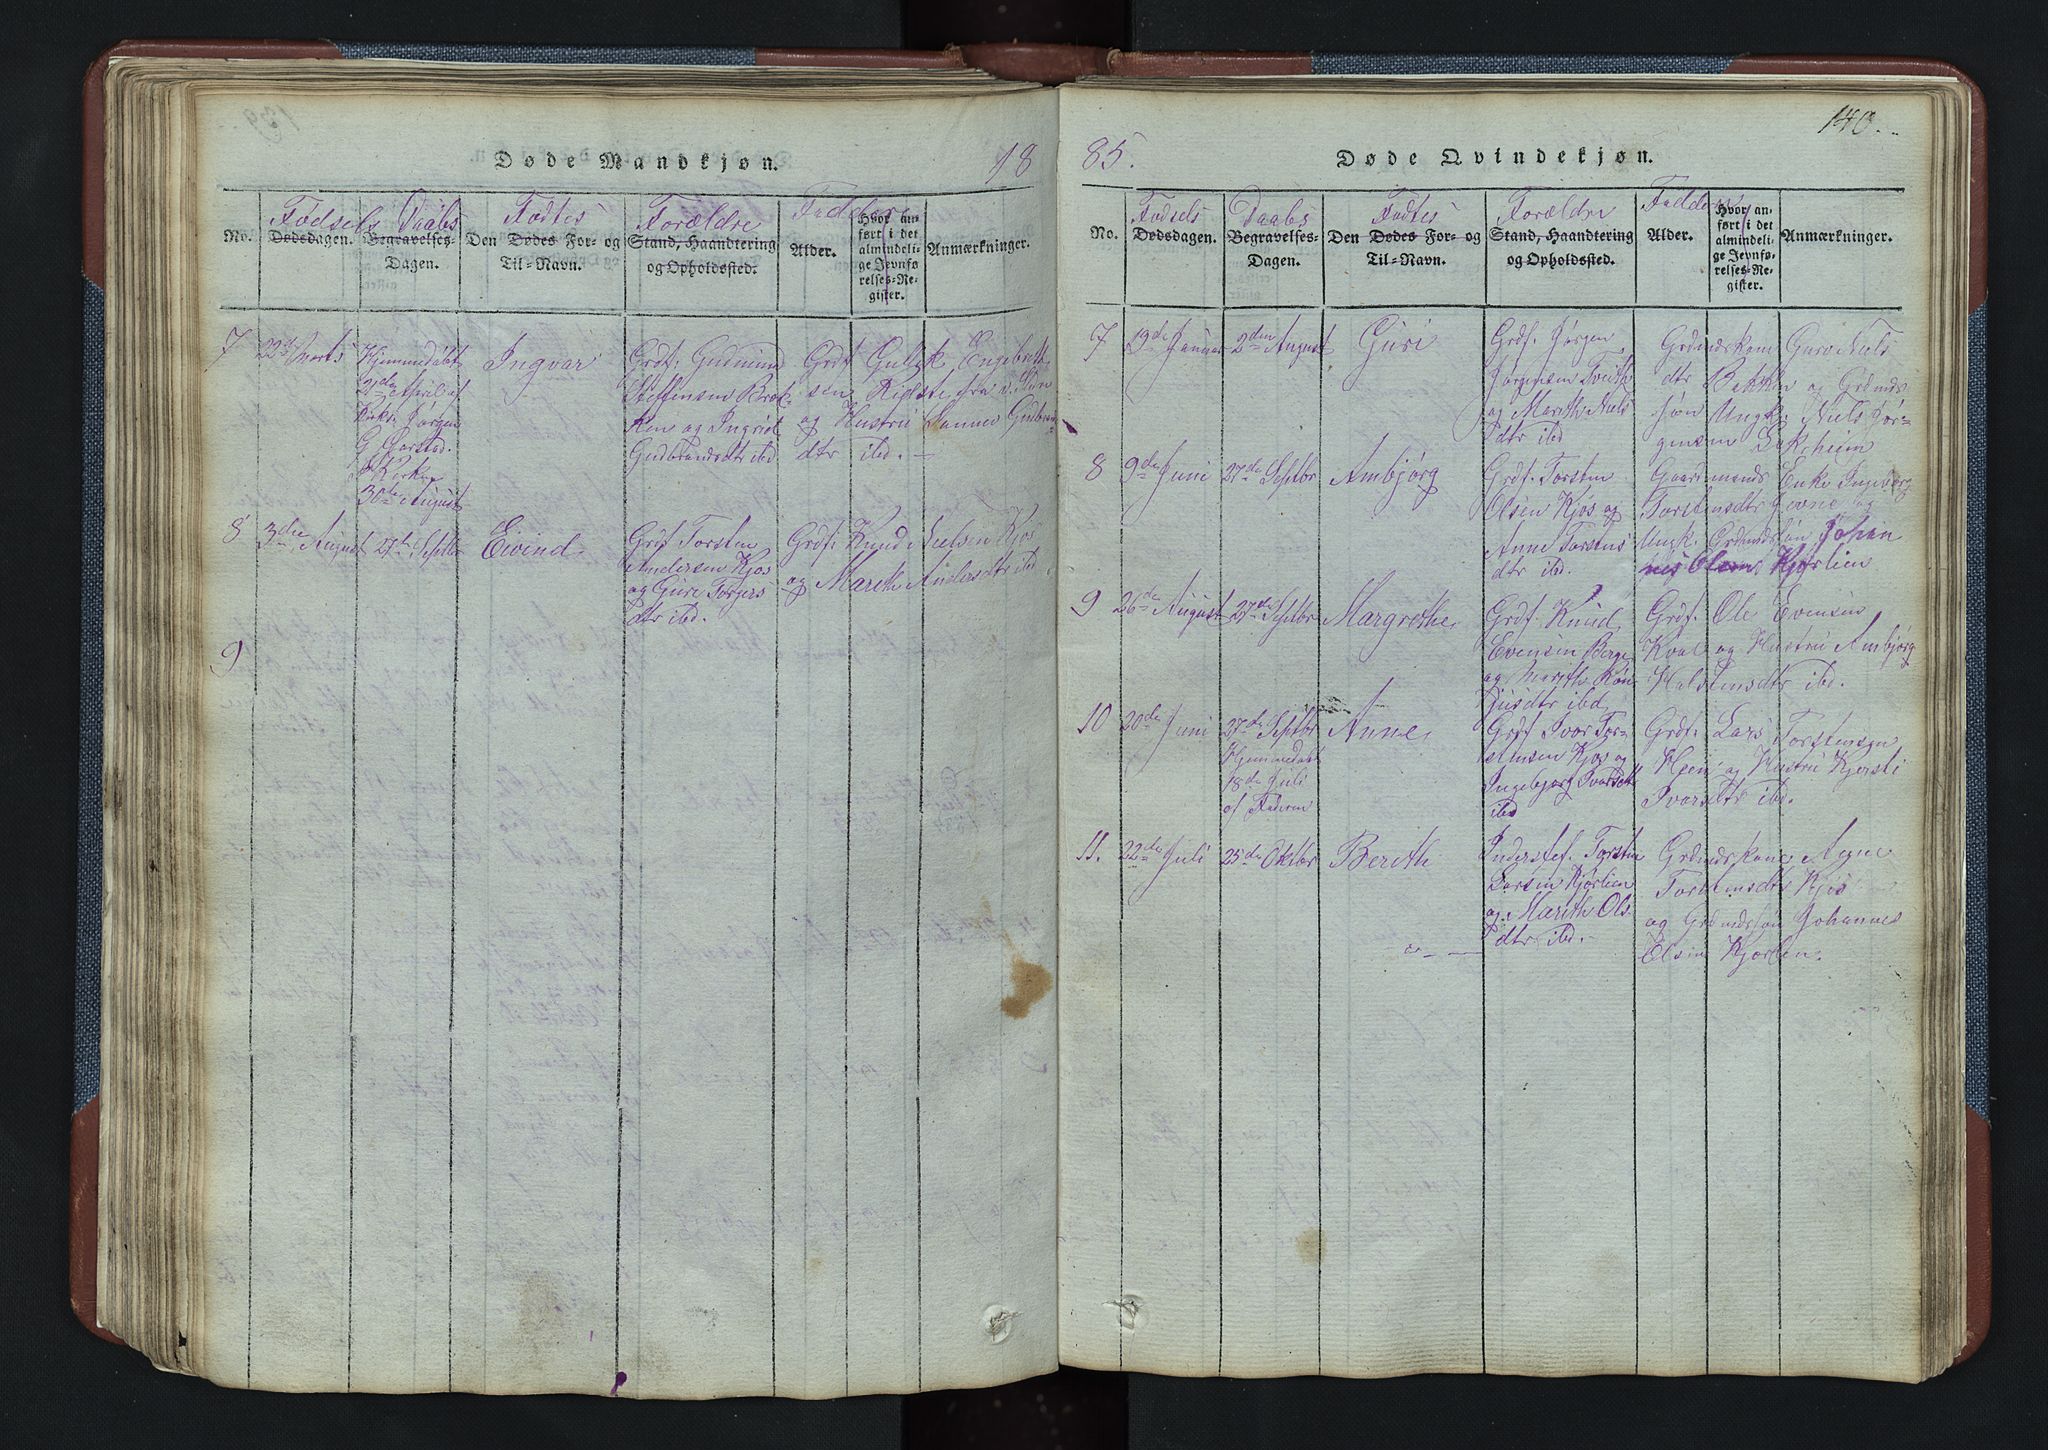 Døde Mandkjøn.
18
No.
Fødsels
Dødsdagen.
Daabs
Begravelses-
Dagen.
Fødtes
Den Dødes For- og
Til-Navn.
Forældre
Stand, Haandtering
og Opholdssted.
Faddere
Alder.
Hvor an-
ført i det
almindeli-
ge Jevnfø-
relses-Re-
gister.
Anmærkninger.
7
22de Marts
Hjemmedøbt
2den April af
Kirks. Jørgen
G. Garstad.
i Kirken
30de August
Ingvar
Grdf. Gudmund
Steffensen Brek-
ken og Ingrid
Gudbrandsdtr ibd
Grdf Gullik Engebrett-
sen Ridste fra
og Hustru Sanner Gudbrands-
dtr ibd.
8
3die August
27de Septbr
Eivind
Grdf Torsten
Andersen Kjos
og Guri Torgers
dtr ibd.
Grdf. Knud Nielsen Kjos
og Marith Andersdtr ibd
9
140.
85.
Døde Qvindekjøn.
No.
Fødsels
Dødsdagen.
Daabs
Begravelses-
Dagen.
Fødtes
Den Dødes For- og
Til-Navn.
Forældre
Stand, Haandtering
og Opholdssted.
Faddere
Alder.
Hvor an-
ført i det
almindeli-
ge Jevnfø-
relses-Re-
gister.
Anmærkninger.
7
19de Januar
2den August
Guri
Grdf. Jørgen
Jørgensen Tveith
og Marith Niels
dtr ibd
Grdmdskone Guro Niels
dtr Bakken og Grdmds
søn Ungk. Niels Jør-
gensen Bakheim
8
9de Juni
27de Septbr
Ambjørg
Grdf. Torsten
Olsen Kjos og
Anne Torstens
dtr ibd.
Gaardmands Enke Ingeborg
Torstensdtr Jevne og
Ungk. Grdmdssøn Johan
nes Olsen Kjørlien
9
26de August
27de Septbr
Margrethe
Grdf. Knud
Evensen Berge
og Marith Røn-
jusdtr ibd,
Grdf. Ole Evensen
Kval og Hustru Ambjørg
Halstensdtr ibd.
10
20de Juni
27de Septbr
Hjemmedøbt
18de Juli
af Faderen
Anne,
Grdf Ivar Tor-
stensen Kjos og
Ingebjørg Ivarsdtr
ibd
Grdf. Lars Torstensen
Hjem og Hustru Kjersti
Ivarsdtr ibd.
11.
22de Juli
25de Oktbr
Berith
Inderstef. Torsten
Larsen Kjørlien
og Marith Ols-
dtr ibd.
Grdmdskone Anne
Torstensdtr Kjos
og Grdmdssøn Johannes
Olsen Kjørlien.